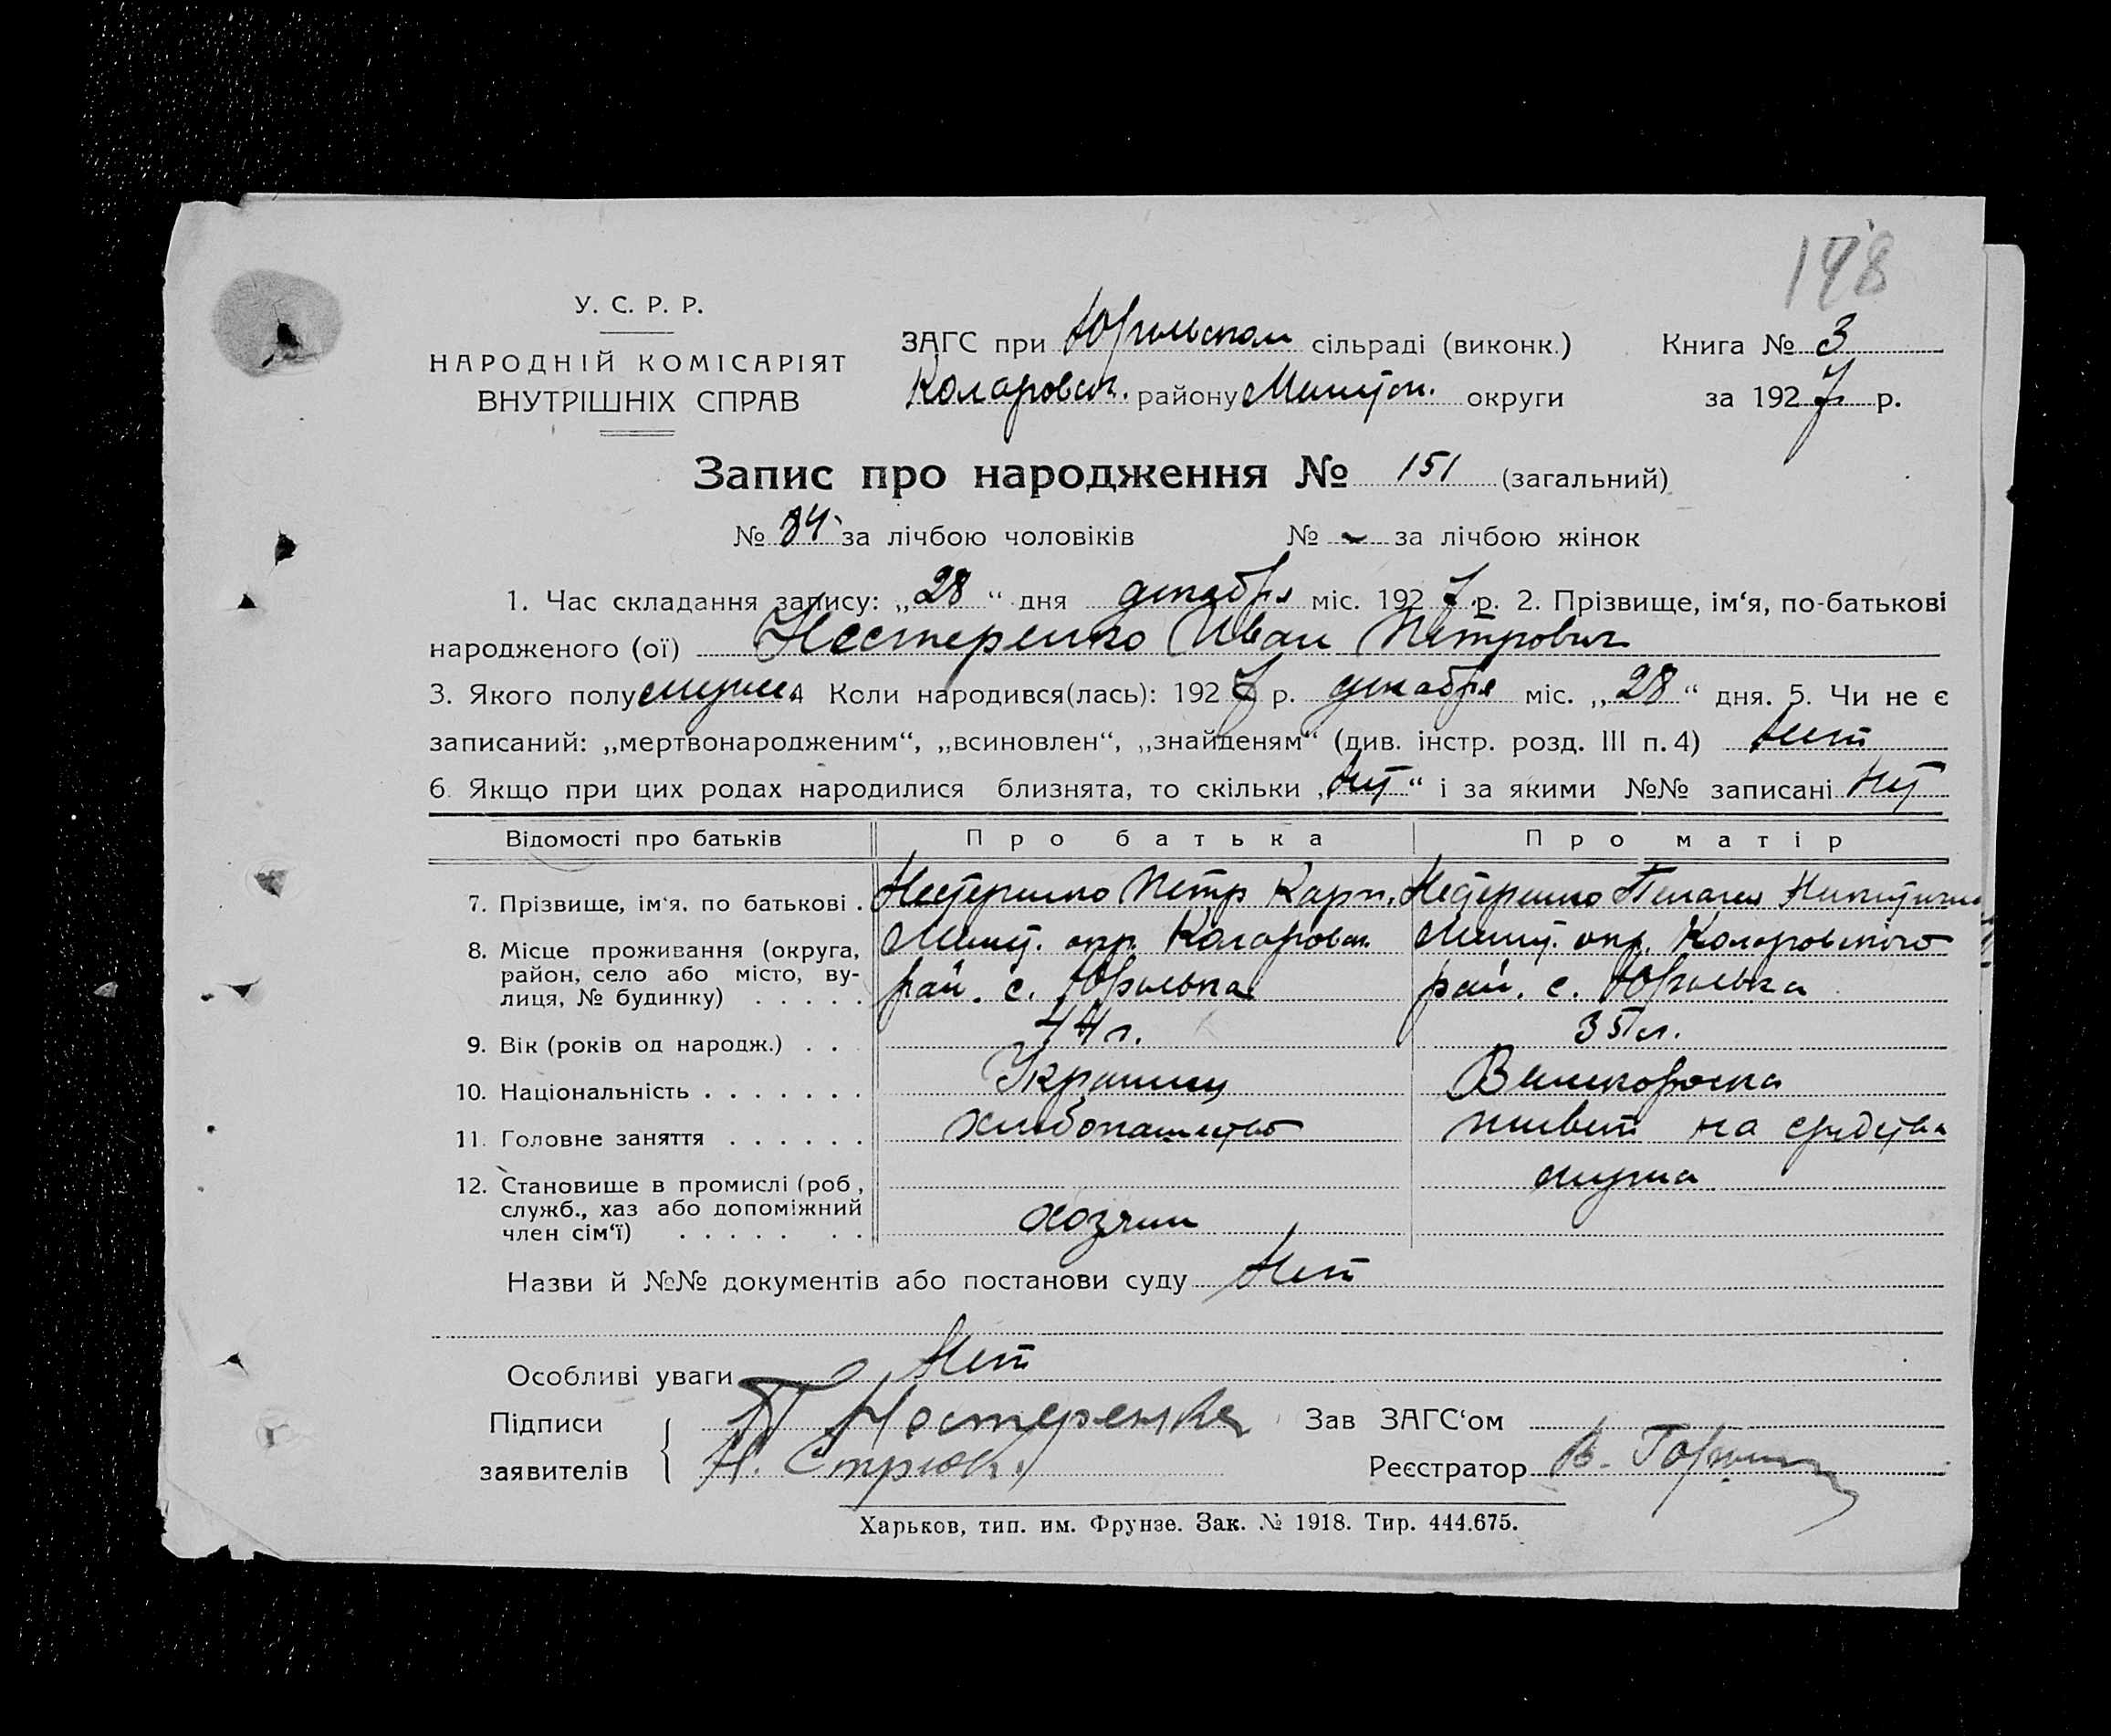 148
У. С. Р. Р.
НАРОДНІЙ КОМІСАРІЯТ
ВНУТРІШНІХ СПРАВ
ЗАГС при Юрьевском сільраді (виконк.)
Коларовск. району Мариуп. округи
Книга № 3
за 1927 р.
Запис про народження № 151 (загальний)
№ 84 за лічбою чоловіків № - за лічбою жінок
1. Час складання запису: „28“ дня декабря міс. 1927 р. 2. Прізвище, ім‘я, по-батькові
народженого (ої) Нестеренко Иван Петрович
3. Якого полу мужс. 4 Коли народився(лась): 1927 р. декабря міс. „28“ дня. 5. Чи не є
записаний: „мертвонародженим“, „всиновлен“, „знайденям“ (див. інстр. розд. III п. 4) Нет
6. Якщо при цих родах народилися близнята, то скільки „Нет“ і за якими №№ записані Нет
Відомості про батьків Про батька Про матір
7. Прізвище, ім‘я. по батькові . Нестеренко Петр Карп. Нестеренко Пелагея Никитична
8. Місце проживання (округа, район, село або місто, вулиця, № будинку) . . . . . окр. Коларовск. рай. с. окр. Коларовского рай. с.
9. Вік (років од народж.) . . 44 г. 35 л.
10. Національність . . . . . . . Украинец Великороска
11. Головне заняття . . . . . . хлебопашество живет на средства мужа
12. Становище в промислі (роб, служб., хаз або допоміжний член сім‘ї) . . . . . . . хозяин
Назви й №№ документів або постанови суду Нет
Особливі уваги Нет
Підписи заявителів П Нестеренко
Зав ЗАГС‘ом
Реєстратор В.
Харьков, тип. им. Фрунзе. Зак. № 1918. Тир. 444.675.